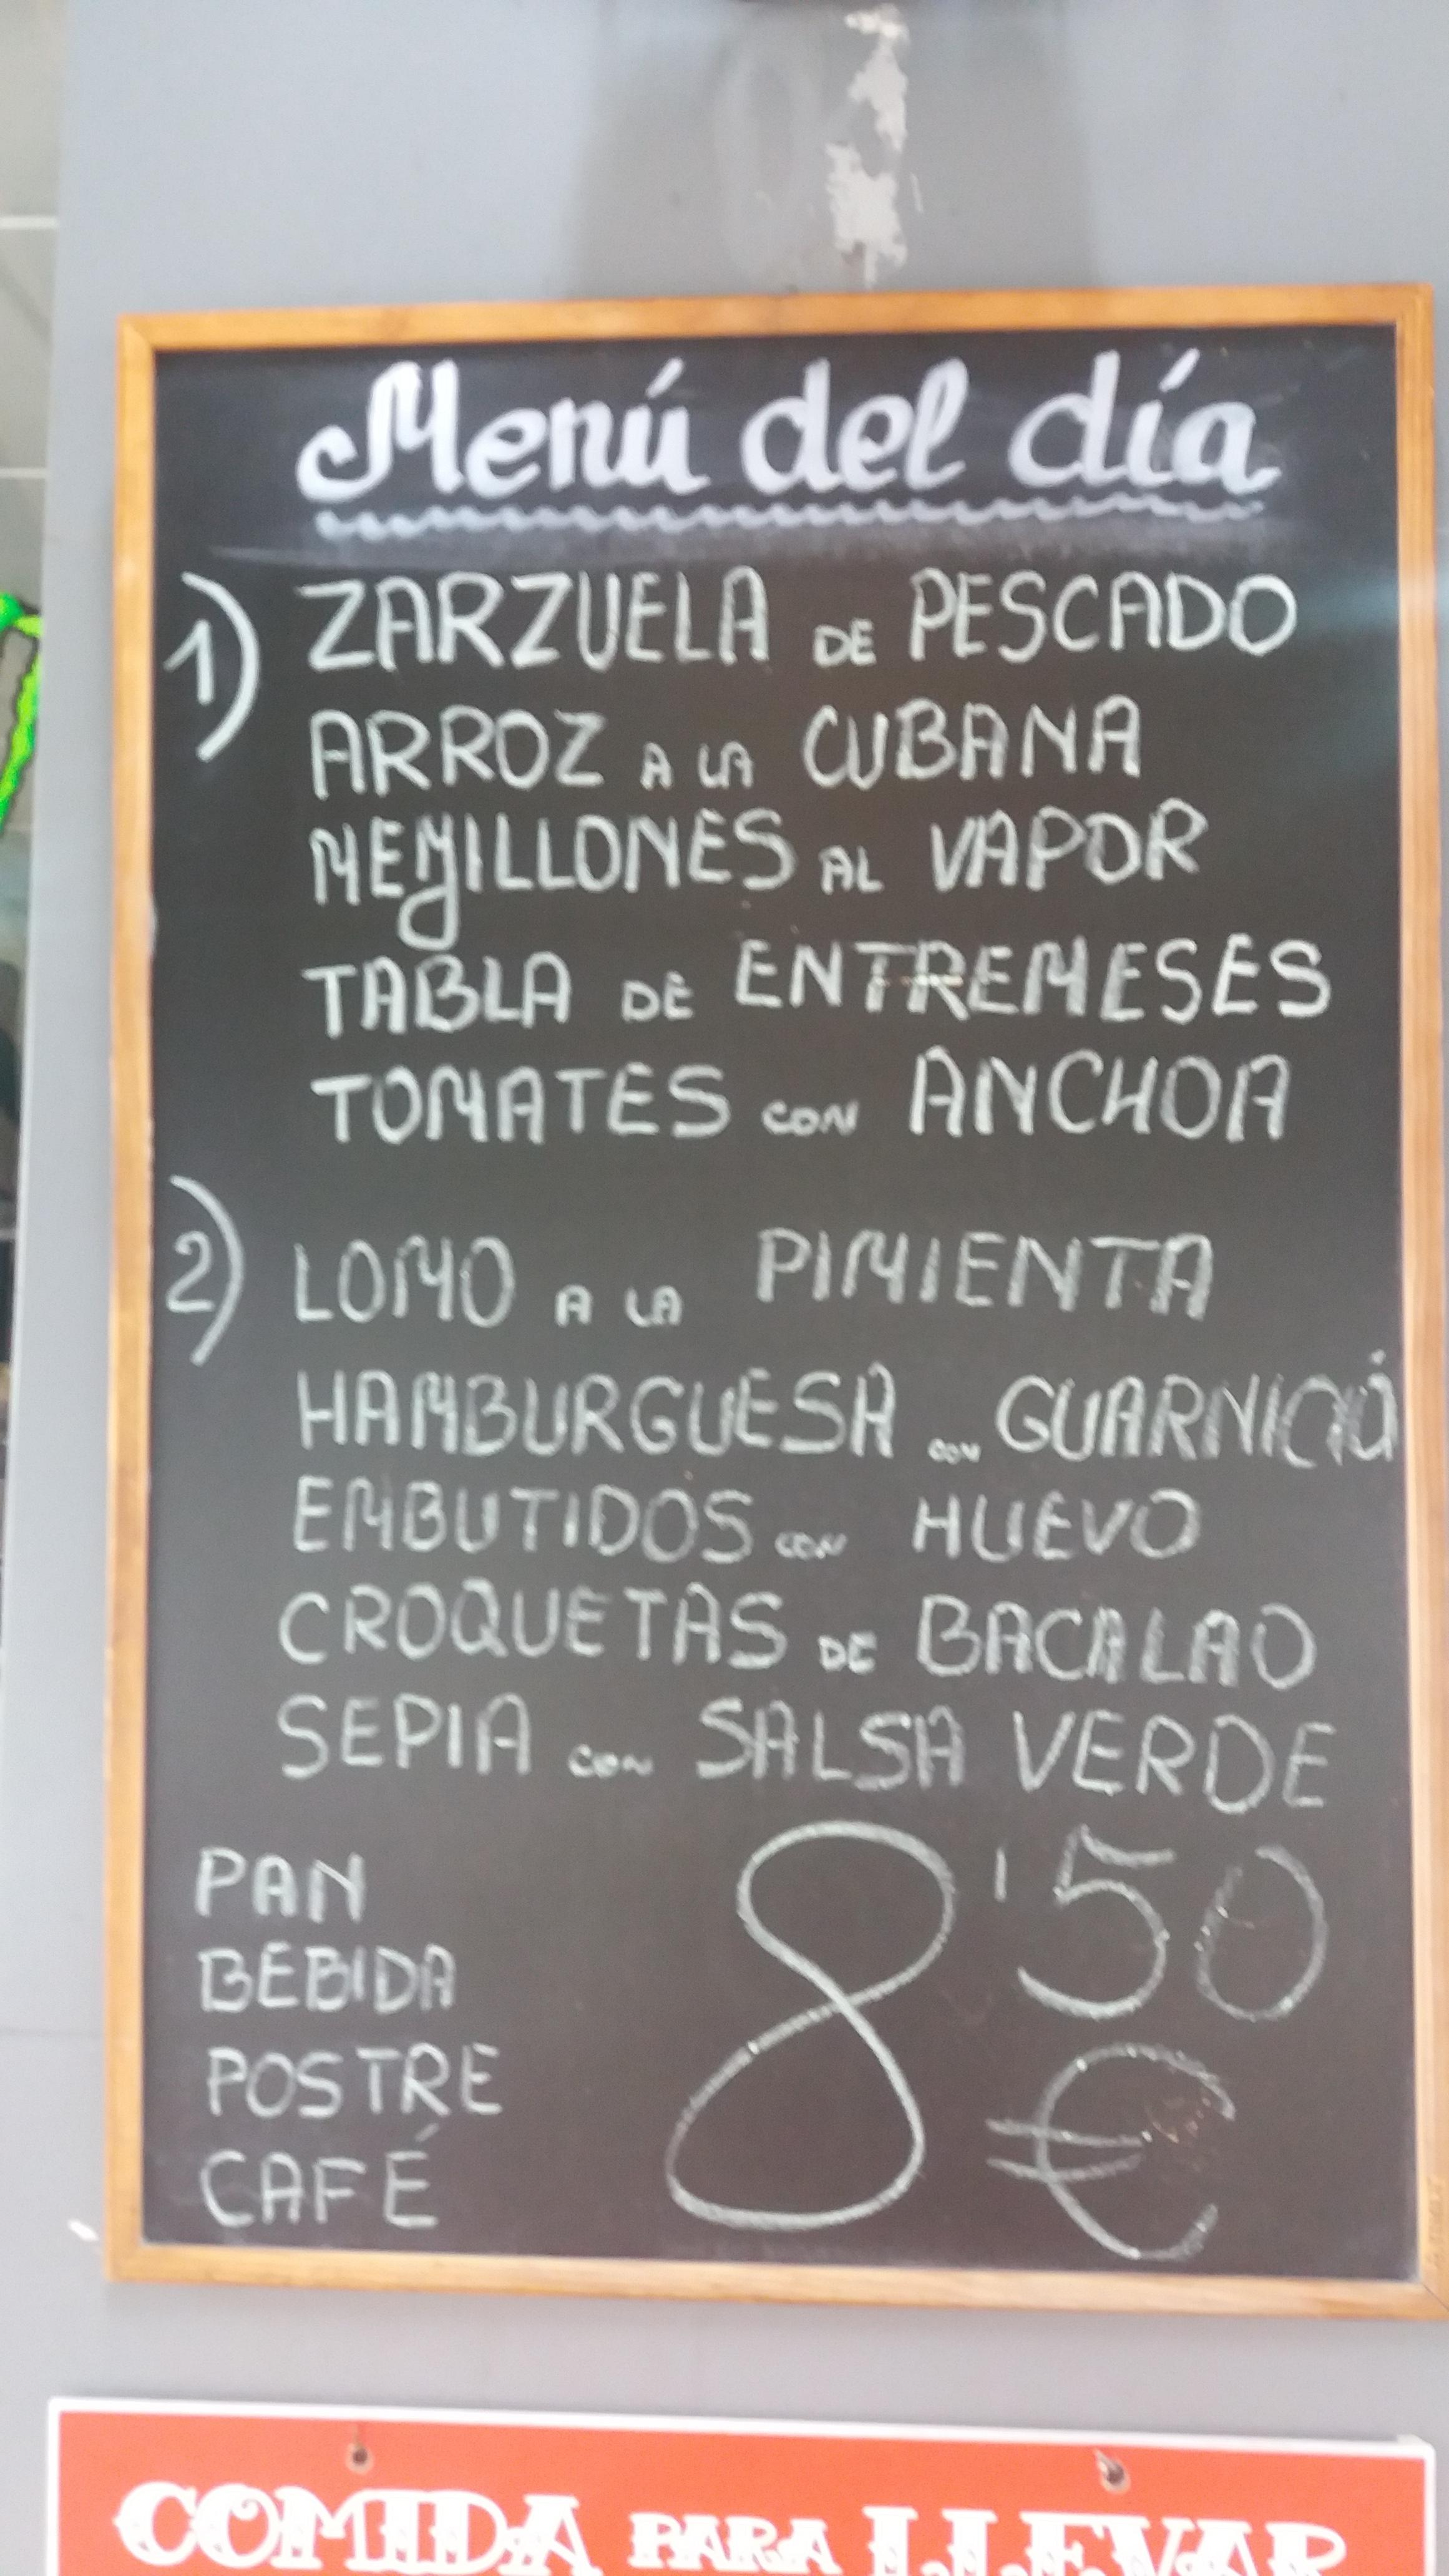 Menú del día
1) ZARZUELA DE PESCADO
ARROZ A LA CUBANA
MEJILLONES AL VAPOR
TABLA DE ENTREMESES
TOMATES CON ANCHOA
2) LOMO A LA PIMIENTA
HAMBURGUESA CON GUARNICIÓ
EMBUTIDOS CON HUEVO
CROQUETAS DE BACALAO
SEPIA CON SALSA VERDE
PAN
BEBIDA
POSTRE
CAFÉ
8'50
€
COMIDA PARA LLEVAR